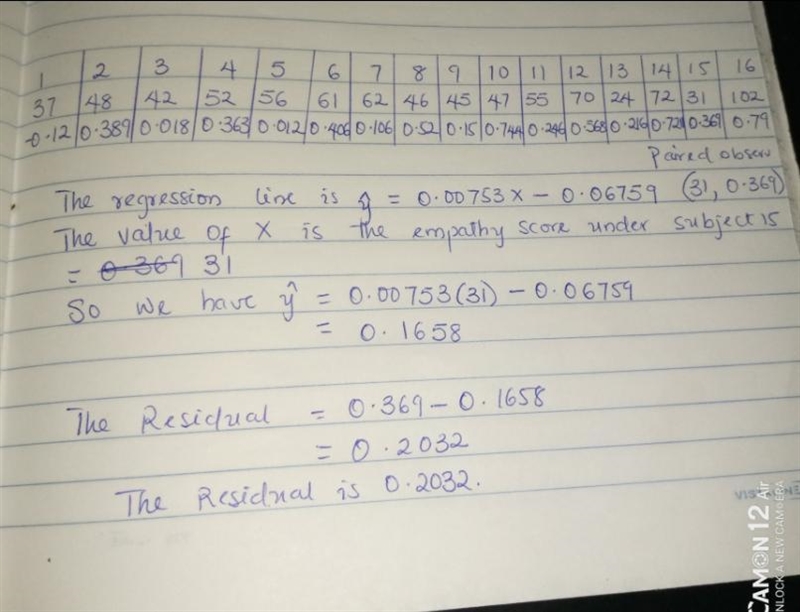 1 2 3 4 5 6 7 8 9 10 11 12 13 14 15 16
37 48 42 52 56 61 62 46 45 47 55 70 24 72 31 102
-0.12 0.389 0.018 0.363 0.012 0.406 0.106 0.52 0.15 0.744 0.246 0.568 0.216 0.720 0.369 0.79
Paired observ
The regression line is ŷ = 0.00753x - 0.06759 (31, 0.369)
The value of x is the empathy score under subject 15
= 0.369 31
So we have ŷ = 0.00753(31) - 0.06759
= 0.1658
The Residual = 0.369 - 0.1658
= 0.2032
The Residual is 0.2032.
CAMON 12 Air
UNLOCK A NEW CAMERA